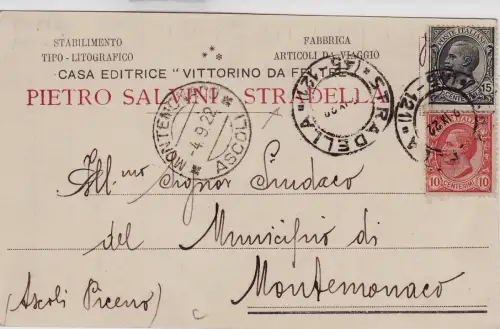 STABILIMENTO
TIPO-LITOGRAFICO
FABBRICA
ARTICOLI DA VIAGGIO
CASA EDITRICE "VITTORINO DA FELTRE"
PIETRO SALVINI - STRADELLA
POSTE ITALIANE
15
CENTESIMI
STRADELLA
MONTEMONACO
ASCOLI
4.9.22
POSTE ITALIANE
10 CENTESIMI 10
Ill.mo Signor Sindaco
del Municipio di
Montemonaco
(Ascoli Piceno)